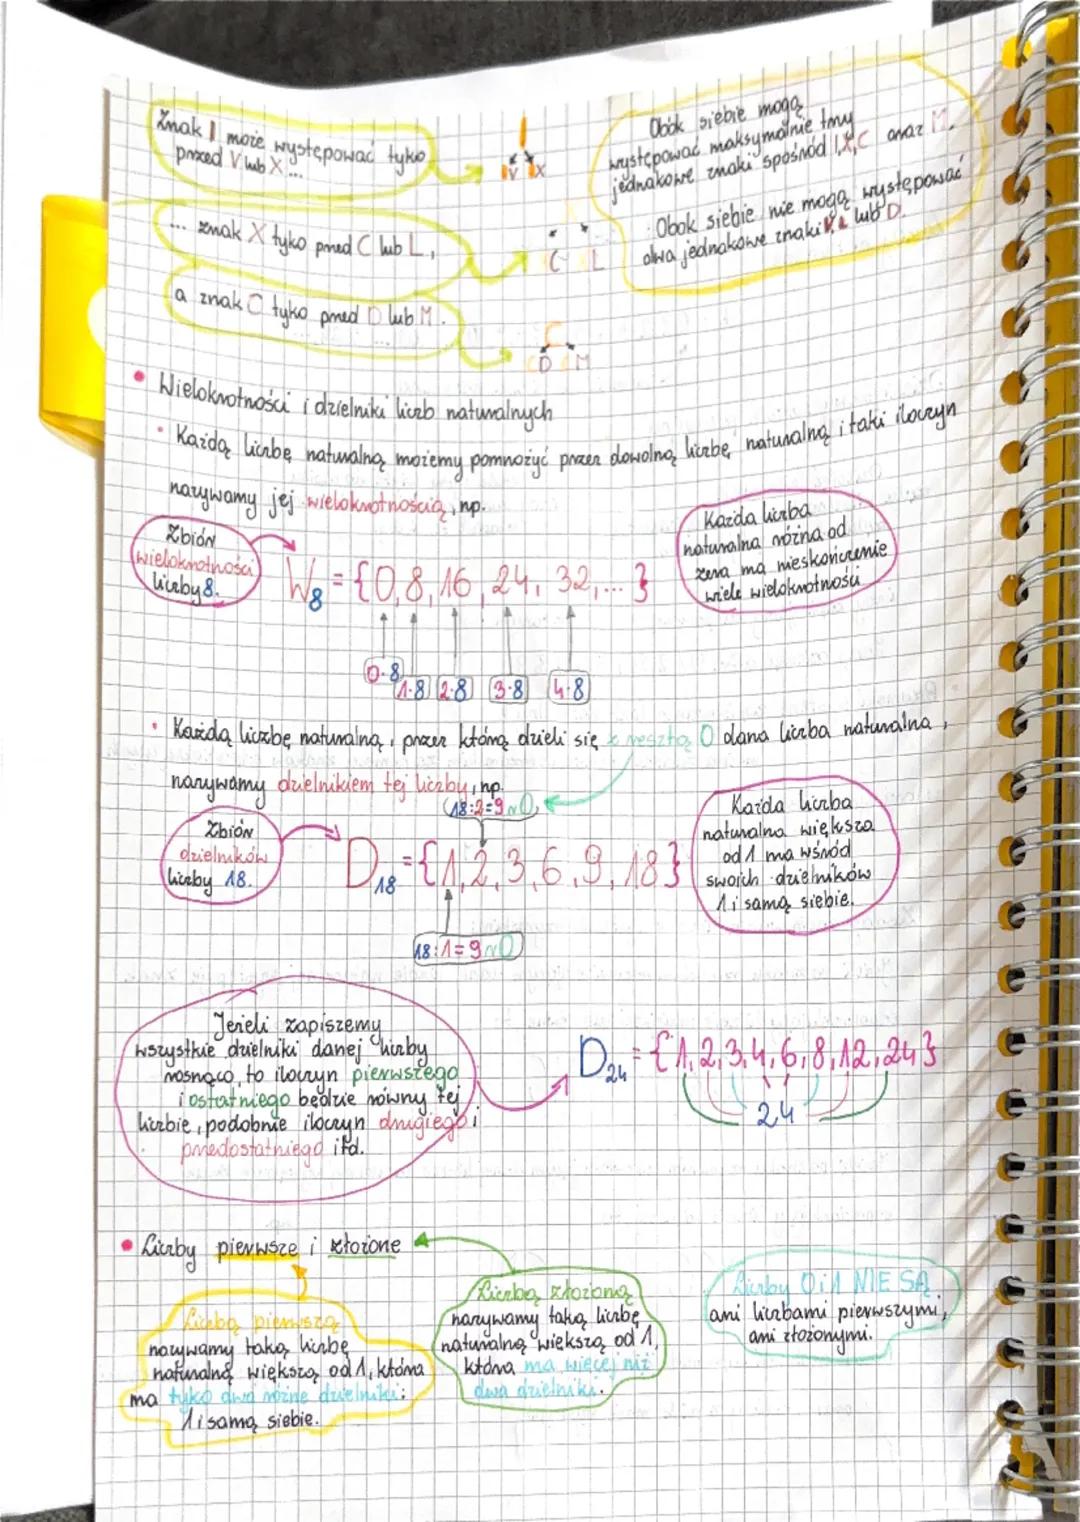 Znak I może występować tyko
przed V lub X...
I
V X
Obok siebie mogą
występować maksymalnie trzy
jednakowe znaki spośród I,X,C oraz M.
Obok siebie nie mogą występować
dwa jednakowe znaki V, L lub D.
... znak X tyko przed C lub L,
X
C L
a znak C tyko przed D lub M.
C
D M
• Wielokrotności i dzielniki liczb naturalnych
• Każdą liczbę naturalną możemy pomnożyć przez dowolną liczbę naturalną i taki iloczyn
nazywamy jej wielokrotnością, np.
Zbiór
wielokrotności
liczby 8.
W₈ = {0, 8, 16, 24, 32, ... }
Każda liczba
naturalna różna od
zera ma nieskończenie
wiele wielokrotności
0·8 1·8 2·8 3·8 4·8
• Każdą liczbę naturalną, przez którą dzieli się z resztą 0 dana liczba naturalna,
nazywamy dzielnikiem tej liczby, np.
18:2=9 r 0
Zbiór
dzielników
liczby 18.
D₁₈ = {1, 2, 3, 6, 9, 18}
Każda liczba
naturalna większa
od 1 ma wśród
swoich dzielników
1 i samą siebie.
18:1=9 r 0
Jeżeli zapiszemy
wszystkie dzielniki danej liczby
rosnąco, to iloczyn pierwszego
i ostatniego będzie równy tej
liczbie, podobnie iloczyn drugiego i
przedostatniego itd.
D₂₄ = {1, 2, 3, 4, 6, 8, 12, 24}
24
• Liczby pierwsze i złożone
Liczbą pierwszą
nazywamy taką liczbę
naturalną większą od 1, która
ma tyko dwa różne dzielniki:
1 i samą siebie.
Liczbą złożoną
nazywamy taką liczbę
naturalną większą od 1,
która ma więcej niż
dwa dzielniki.
Liczby 0 i 1 NIE SĄ
ani liczbami pierwszymi,
ani złożonymi.